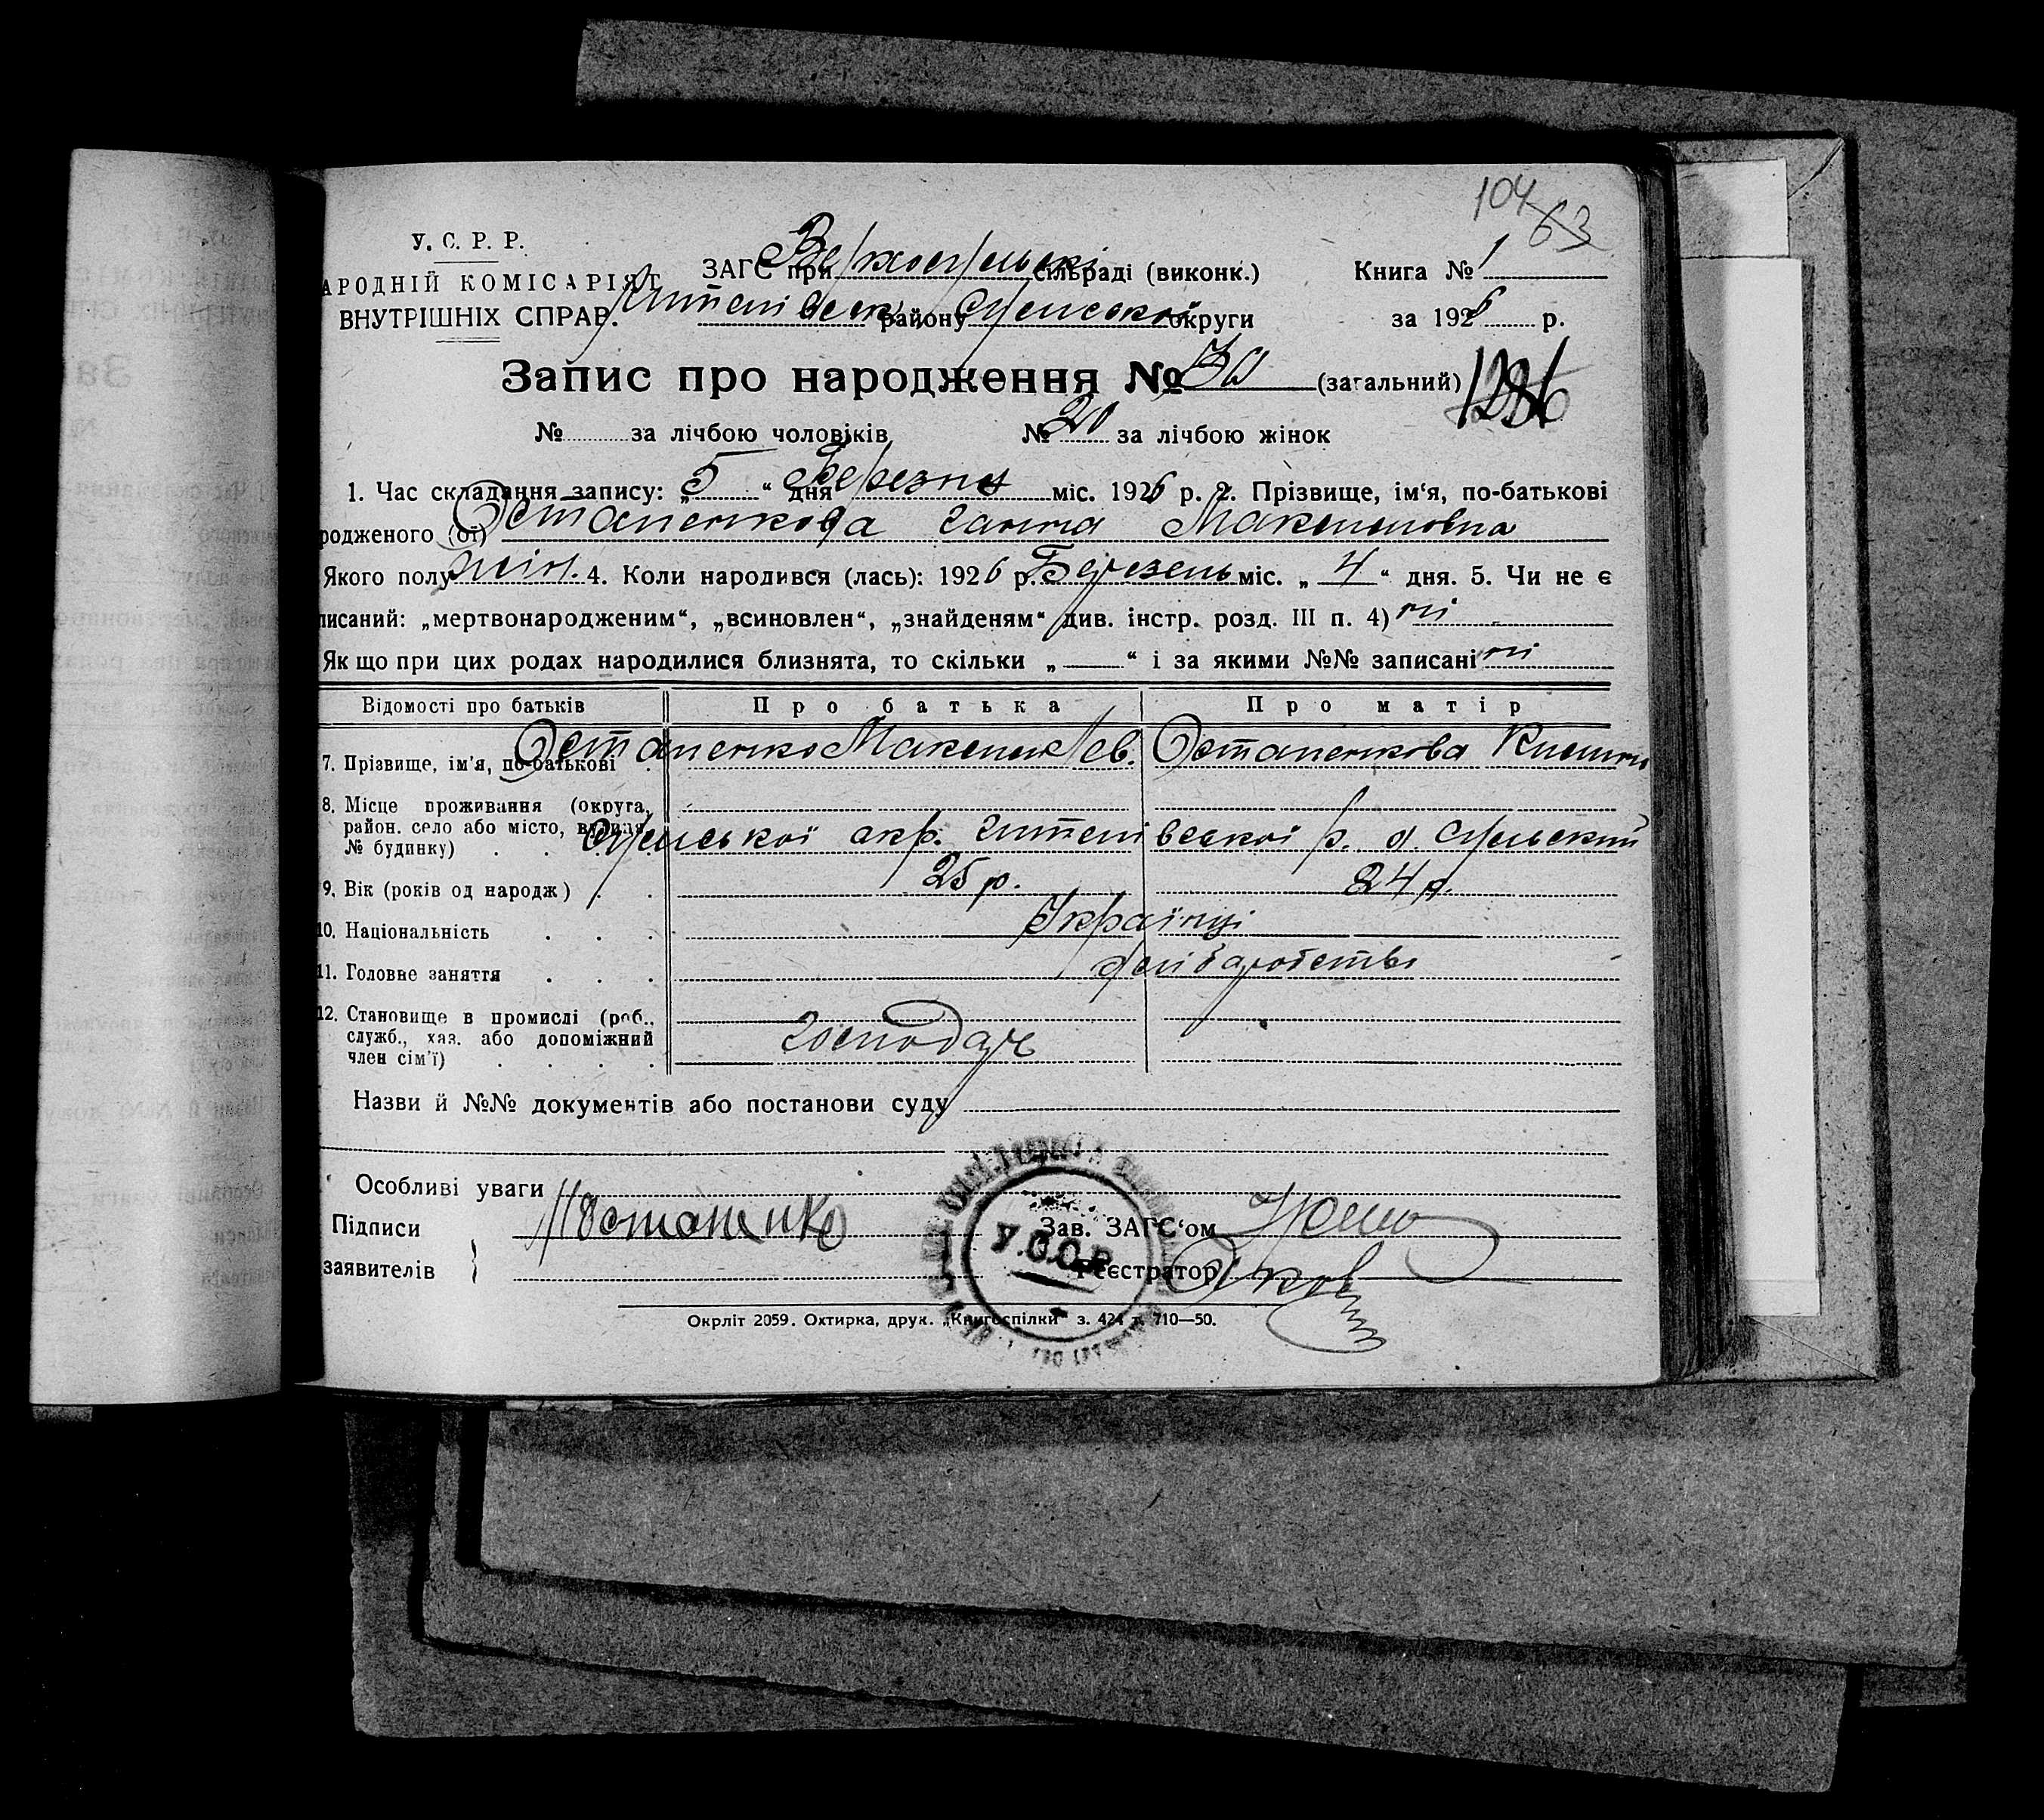 104 63
У. С. Р. Р.
АРОДНІЙ КОМІСАРІЯТ
ВНУТРІШНІХ СПРАВ.
ЗАГС при Верхосульські сільраді (виконк.)
Книга № 1
району Сумської округи
за 1926 р.
Запис про народження № 30 (загальний) 1286
№ за лічбою чоловіків № 20 за лічбою жінок
1. Час складання запису: „5“ дня Березня міс. 1926 р. 2. Прізвище, ім‘я, по-батькові
родженого (ої) Остапенкова Ганна
Якого полу жін. 4. Коли народився (лась): 1926 р. Березень міс. „4“ дня. 5. Чи не є
писаний: „мертвонародженим“, „всиновлен“, „знайденям“ див. інстр. розд. III п. 4) ні
Як що при цих родах народилися близнята, то скільки „—“ і за якими №№ записані ні
Відомості про батьків Про батька Про матір
7. Прізвище, ім'я, по-батькові Остапенко Лев. Остапенкова
8. Місце проживання (округа,
район, село або місто, вулиця,
№ будинку) Сумської окр. р.
9. Вік (років од народж) 25 р. 24 р.
10. Національність Українці
11. Головне заняття
12. Становище в промислі (роб.,
служб., хаз. або допоміжний
член сім'ї) господарь
Назви й №№ документів або постанови суду
Особливі уваги
Підписи Остапенко Зав. ЗАГС‘ом
заявителів Реєстратор
У.С.С.Р.
Окрліт 2059. Охтирка, друк. „Книгоспілки“ з. 424 т. 710—50.